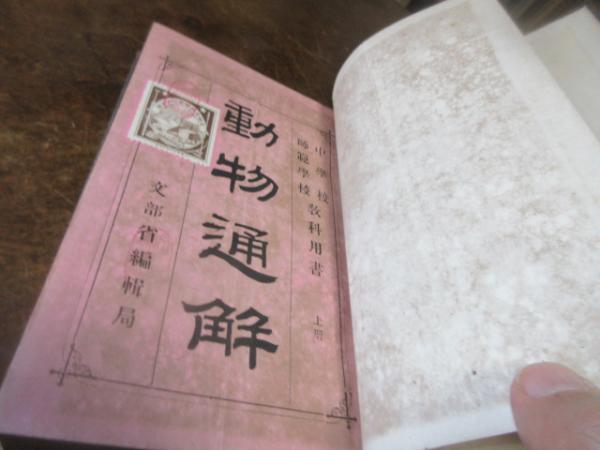 中學校
師範學校
教科用書
上冊
動物通解
文部省編輯局